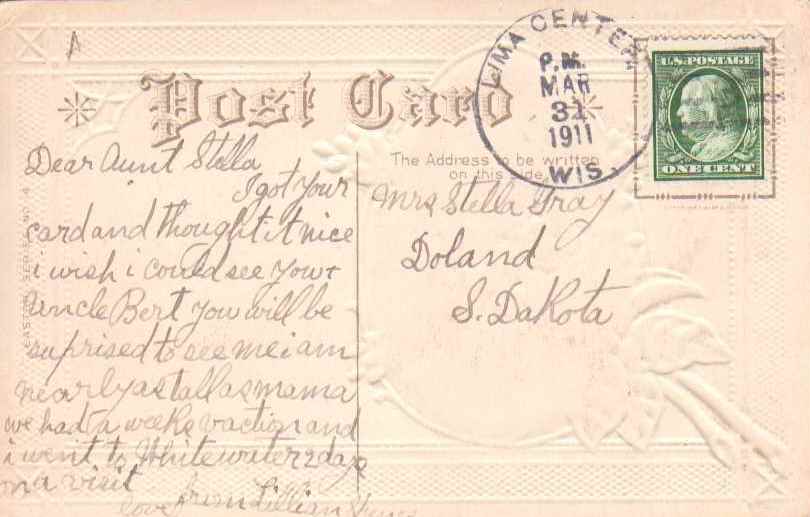 A
LIMA CENTER
P.M.
MAR
31
1911
WIS.
U.S. POSTAGE
ONE CENT
Post Card
The Address to be written
on this side
Dear Aunt Stella
I got your
card and thought it nice
i wish i could see you +
Uncle Bert you will be
suprised to see me i am
nearly as tall as mama
we had a weeks vaction and
i went to Whitewater 2 days
on a visit
love from Lillian
Mrs Stella Gray
Doland
S. Dakota
EASTER SERIES NO.